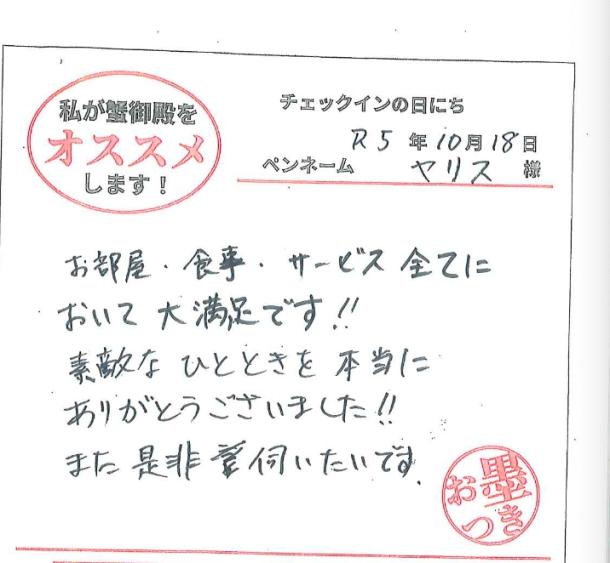 私が蟹御殿を
オススメ
します!
チェックインの日にち
R5年10月18日
ペンネーム ヤリス 様
お部屋・食事・サービス 全てに
おいて 大満足です!!
素敵な ひとときを 本当に
ありがとうございました!!
また 是非 伺いたいです。
お墨
つき